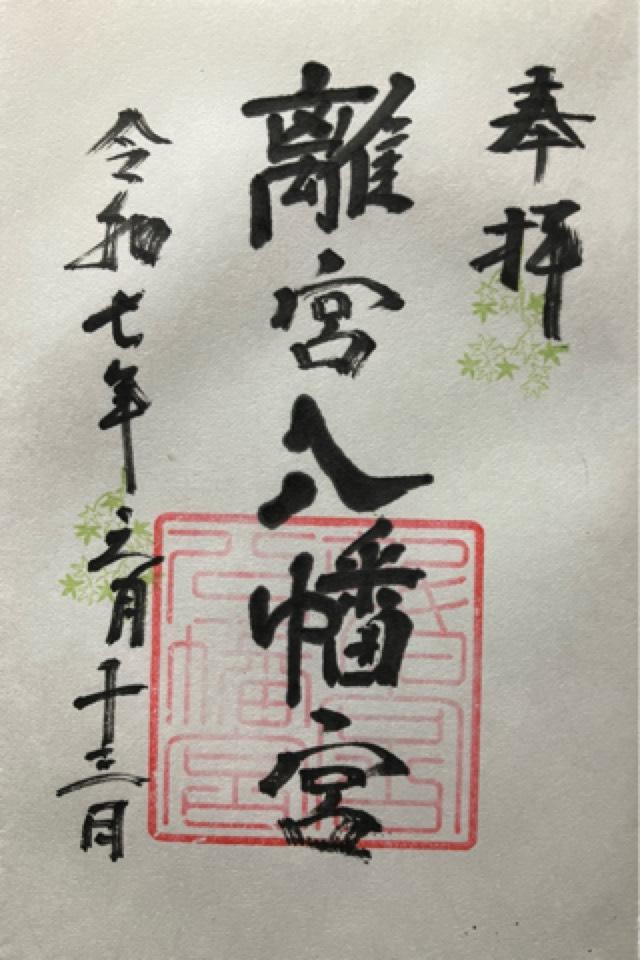 奉拝
離宮八幡宮
令和七年五月十三日